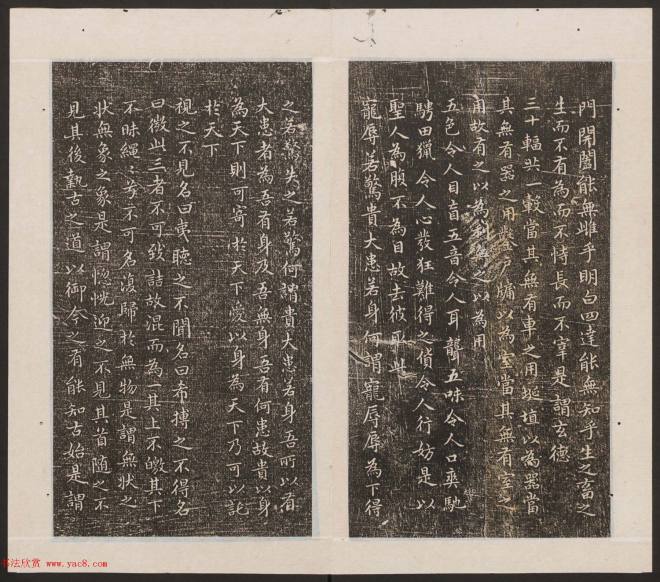 門開闔能無雌乎明白四達能無知乎生之畜之
生而不有為而不恃長而不宰是謂玄德
三十輻共一轂當其無有車之用埏埴以為器當
其無有器之用鑿戶牖以為室當其無有室之
用故有之以為利無之以為用
五色令人目盲五音令人耳聾五味令人口爽馳
騁田獵令人心發狂難得之貨令人行妨是以
聖人為腹不為目故去彼取此
寵辱若驚貴大患若身何謂寵辱辱為下得
之若驚失之若驚何謂貴大患若身吾所以有
大患者為吾有身及吾無身吾有何患故貴以身
為天下則可寄於天下愛以身為天下乃可以託
於天下
視之不見名曰夷聽之不聞名曰希搏之不得名
曰微此三者不可致詰故混而為一其上不皦其下
不昧繩繩兮不可名復歸於無物是謂無狀之
狀無象之象是謂惚恍迎之不見其首隨之不
見其後執古之道以御今之有能知古始是謂
书法欣赏 www.yac8.com